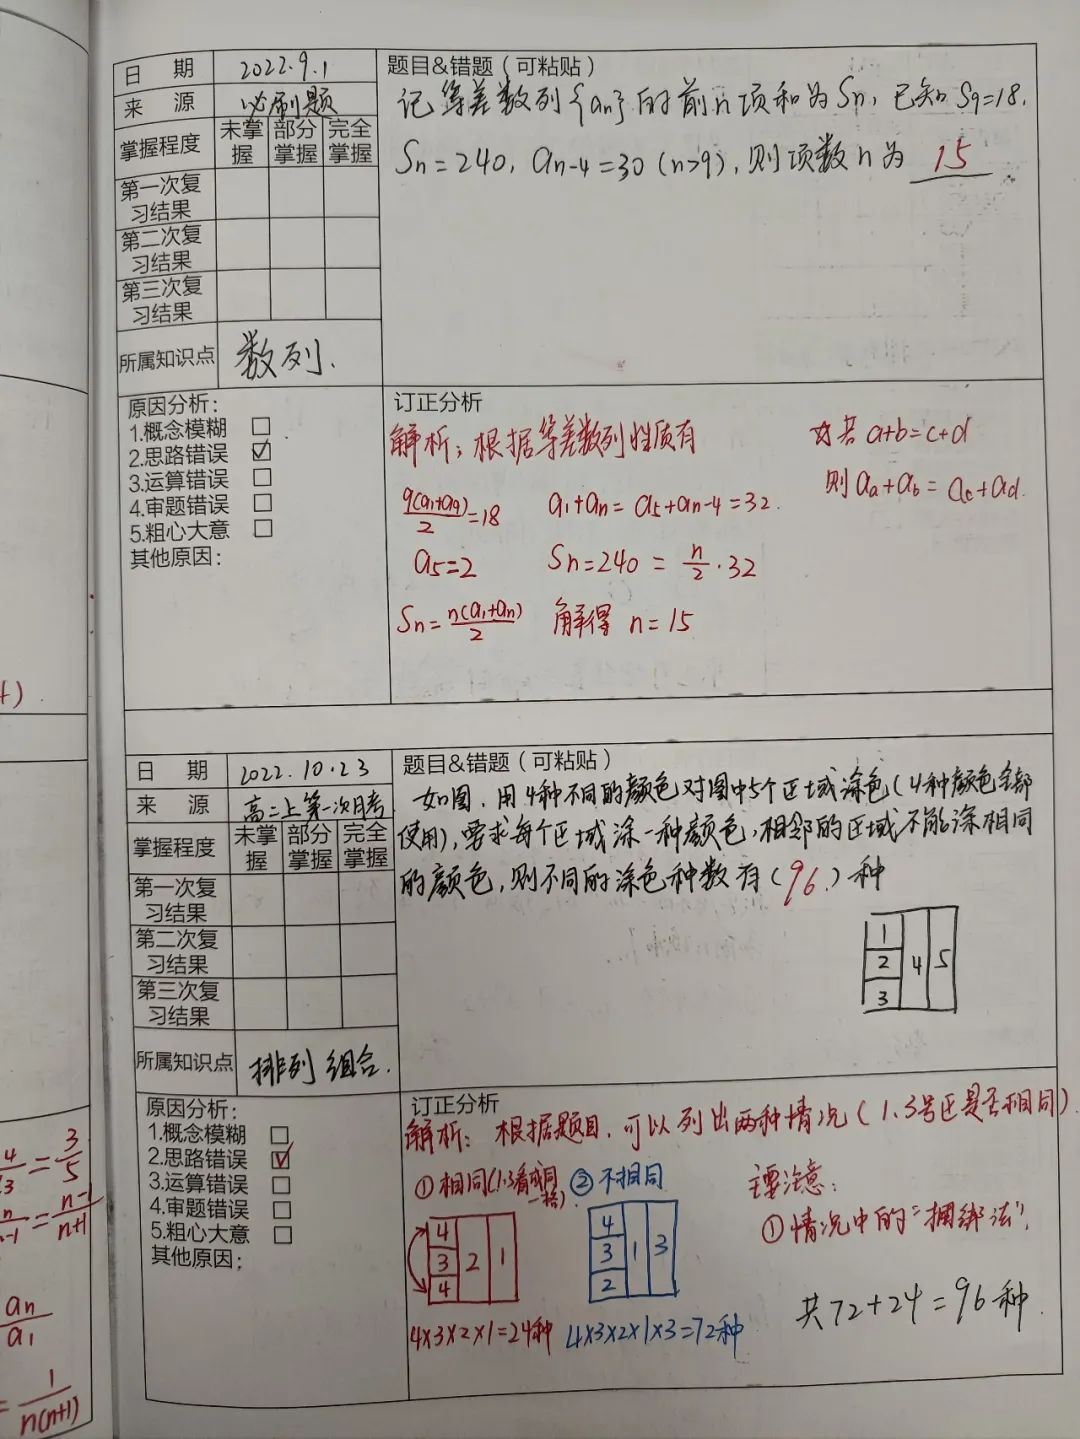 日 期 2022.9.1
来 源 必刷题
掌握程度 未掌握 部分掌握 完全掌握
第一次复习结果
第二次复习结果
第三次复习结果
所属知识点 数列.
题目&错题（可粘贴）
记等差数列{an}的前n项和为Sn,已知S9=18,
Sn=240, an-4=30 (n>9),则项数n为 15
原因分析：
1.概念模糊 □
2.思路错误 ☑
3.运算错误 □
4.审题错误 □
5.粗心大意 □
其他原因：
订正分析
解析：根据等差数列性质有
9(a1+a9)/2=18 a1+an=a5+an-4=32.
a5=2 Sn=240=n/2·32
Sn=n(a1+an)/2 解得 n=15
☆若a+b=c+d
则aa+ab=ac+ad.
日 期 2022.10.23
来 源 高二上第一次月考
掌握程度 未掌握 部分掌握 完全掌握
第一次复习结果
第二次复习结果
第三次复习结果
所属知识点 排列组合.
题目&错题（可粘贴）
如图,用4种不同的颜色对图中5个区域涂色(4种颜色全部
使用),要求每个区域涂一种颜色,相邻的区域不能涂相同
的颜色,则不同的涂色种数有(96.)种
1
2 4 5
3
原因分析：
1.概念模糊 □
2.思路错误 ☑
3.运算错误 □
4.审题错误 □
5.粗心大意 □
其他原因：
订正分析
解析：根据题目,可以列出两种情况(1.3号区是否相同)
①相同(1.3看成同一格)
②不相同
4
3 2 1
4
4
3 1 3
2
4×3×2×1=24种
4×3×2×1×3=72种
主要注意：
①情况中的"捆绑法".
共72+24=96种.
4/3=3/5
n/n-1=n-1/n+1
an/a1
=1/n(n+1)